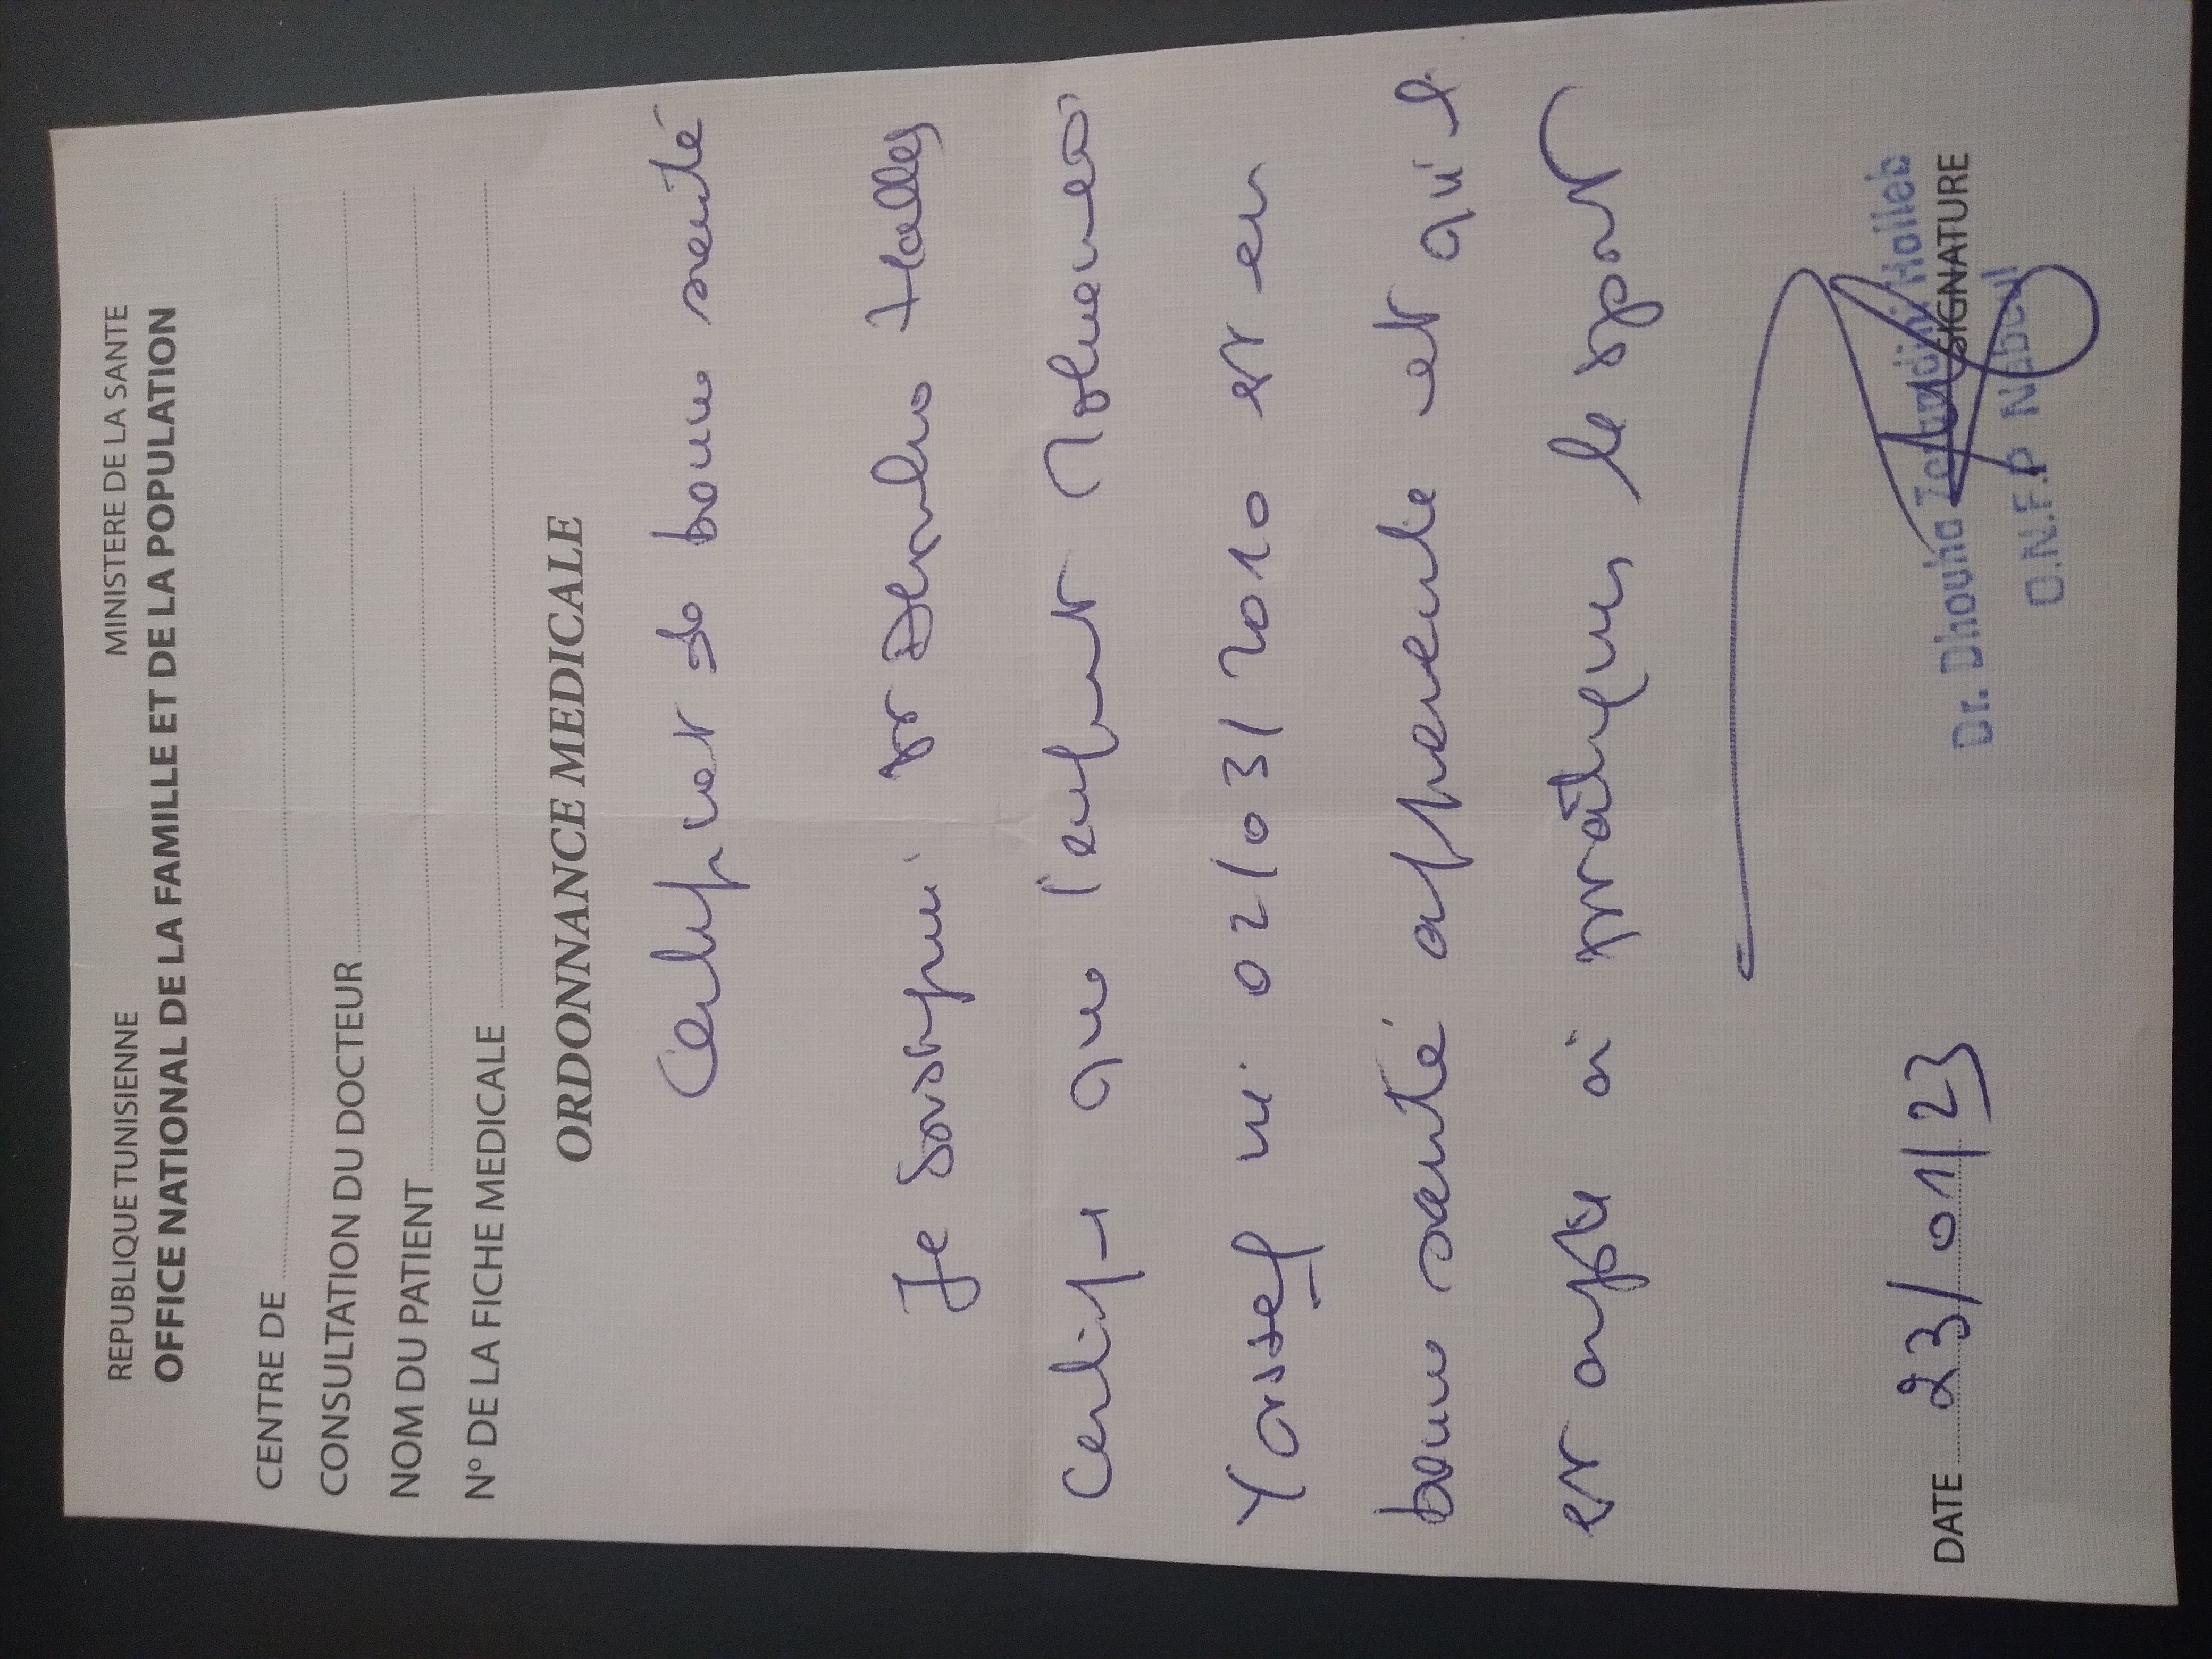 REPUBLIQUE TUNISIENNE MINISTERE DE LA SANTE
OFFICE NATIONAL DE LA FAMILLE ET DE LA POPULATION
CENTRE DE
CONSULTATION DU DOCTEUR
NOM DU PATIENT
N° DE LA FICHE MEDICALE
ORDONNANCE MEDICALE
Certificat de bonne santé
Je soussigné Dr
certifie que l'enfant Mohamed
Yossef né 02/03/2010 est en
bonne santé apparente et qu'il
est apte à pratiquer le sport
DATE 23/01/23 SIGNATURE
Dr. Dhouha
O.N.F.P Nabeul